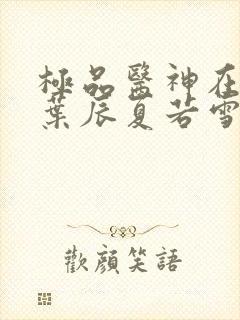 極品醫神在
葉辰夏若雪
歡顏笑語